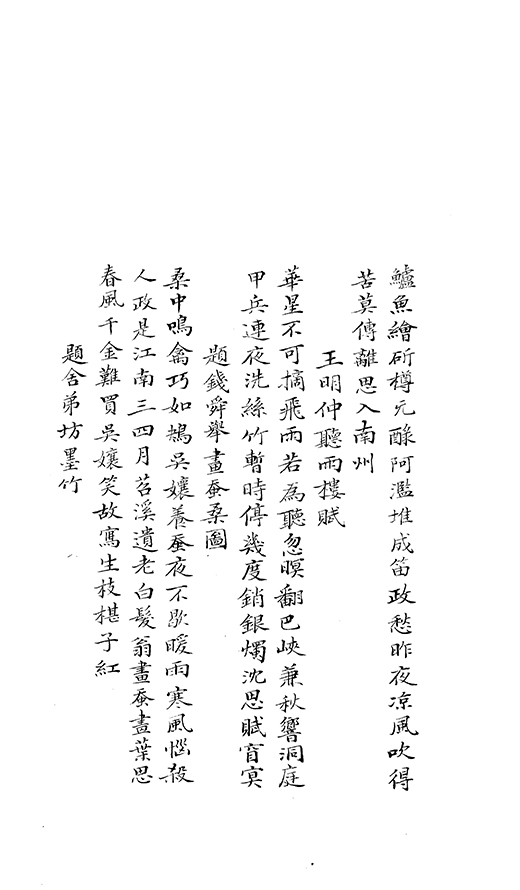 鱸魚繪斫樽元醁阿濫堆成笛政愁昨夜凉風吹得
苦莫傳離思入南州
王明仲聽雨樓賦
華星不可摘飛雨若為聽忽暝翻巴峽兼秋響洞庭
甲兵連夜洗絲竹暫時停幾度銷銀燭沈思賦窅冥
題錢舜舉畫蚕桑圖
桑中鳴禽巧如鴂吳孃養蚕夜不歇暖雨寒風惱殺
人政是江南三四月苕溪遺老白髮翁畫蚕畫葉思
春風千金難買吳孃笑故寫生枝椹子紅
題舍弟坊墨竹